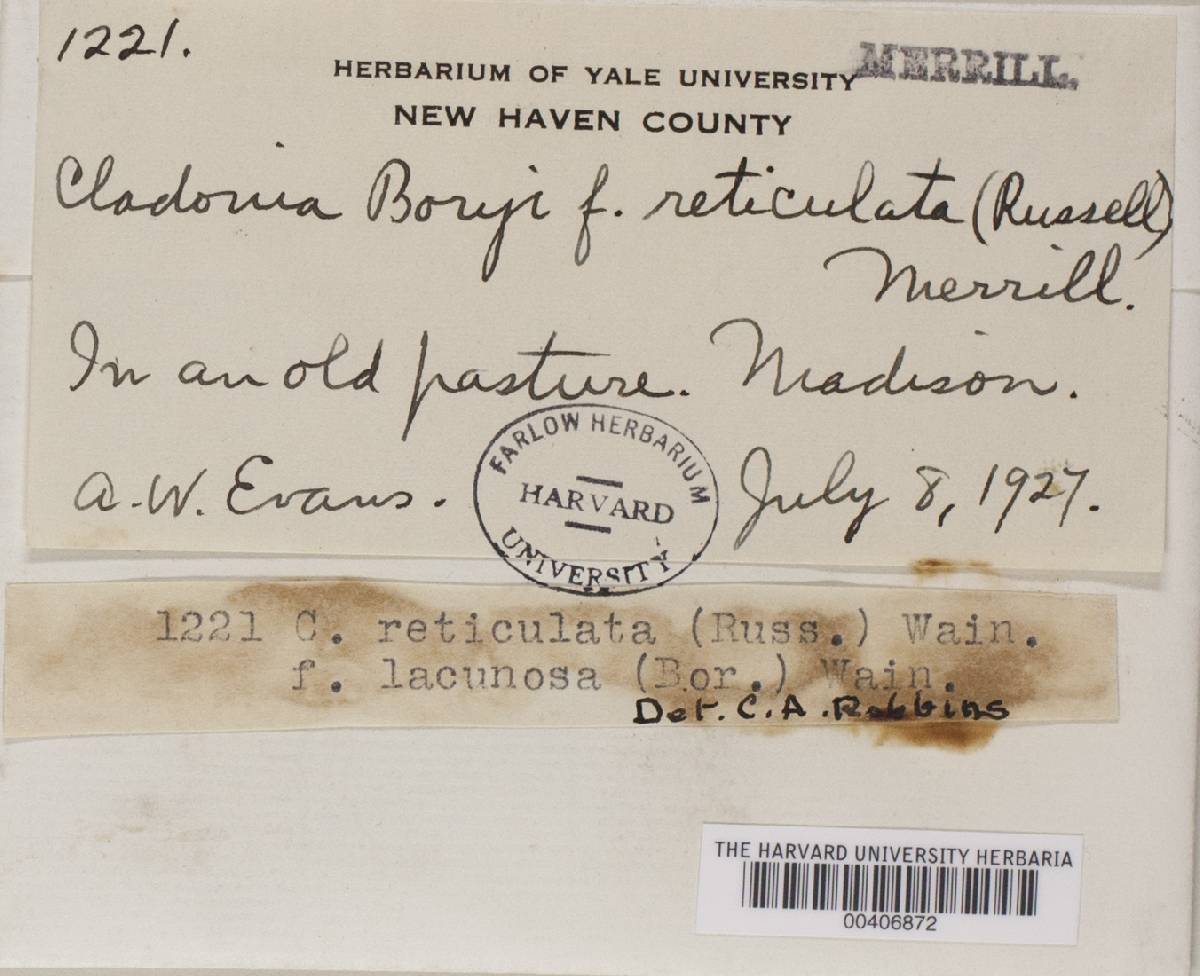 1221.
MERRILL.
HERBARIUM OF YALE UNIVERSITY
NEW HAVEN COUNTY
Cladonia Boryi f. reticulata (Russell)
Merrill.
In an old pasture. Madison.
A. W. Evans. July 8, 1927.
FARLOW HERBARIUM
HARVARD
UNIVERSITY
1221 C. reticulata (Russ.) Wain.
f. lacunosa (Bor.) Wain.
Det. C. A. Robbins
THE HARVARD UNIVERSITY HERBARIA
00406872